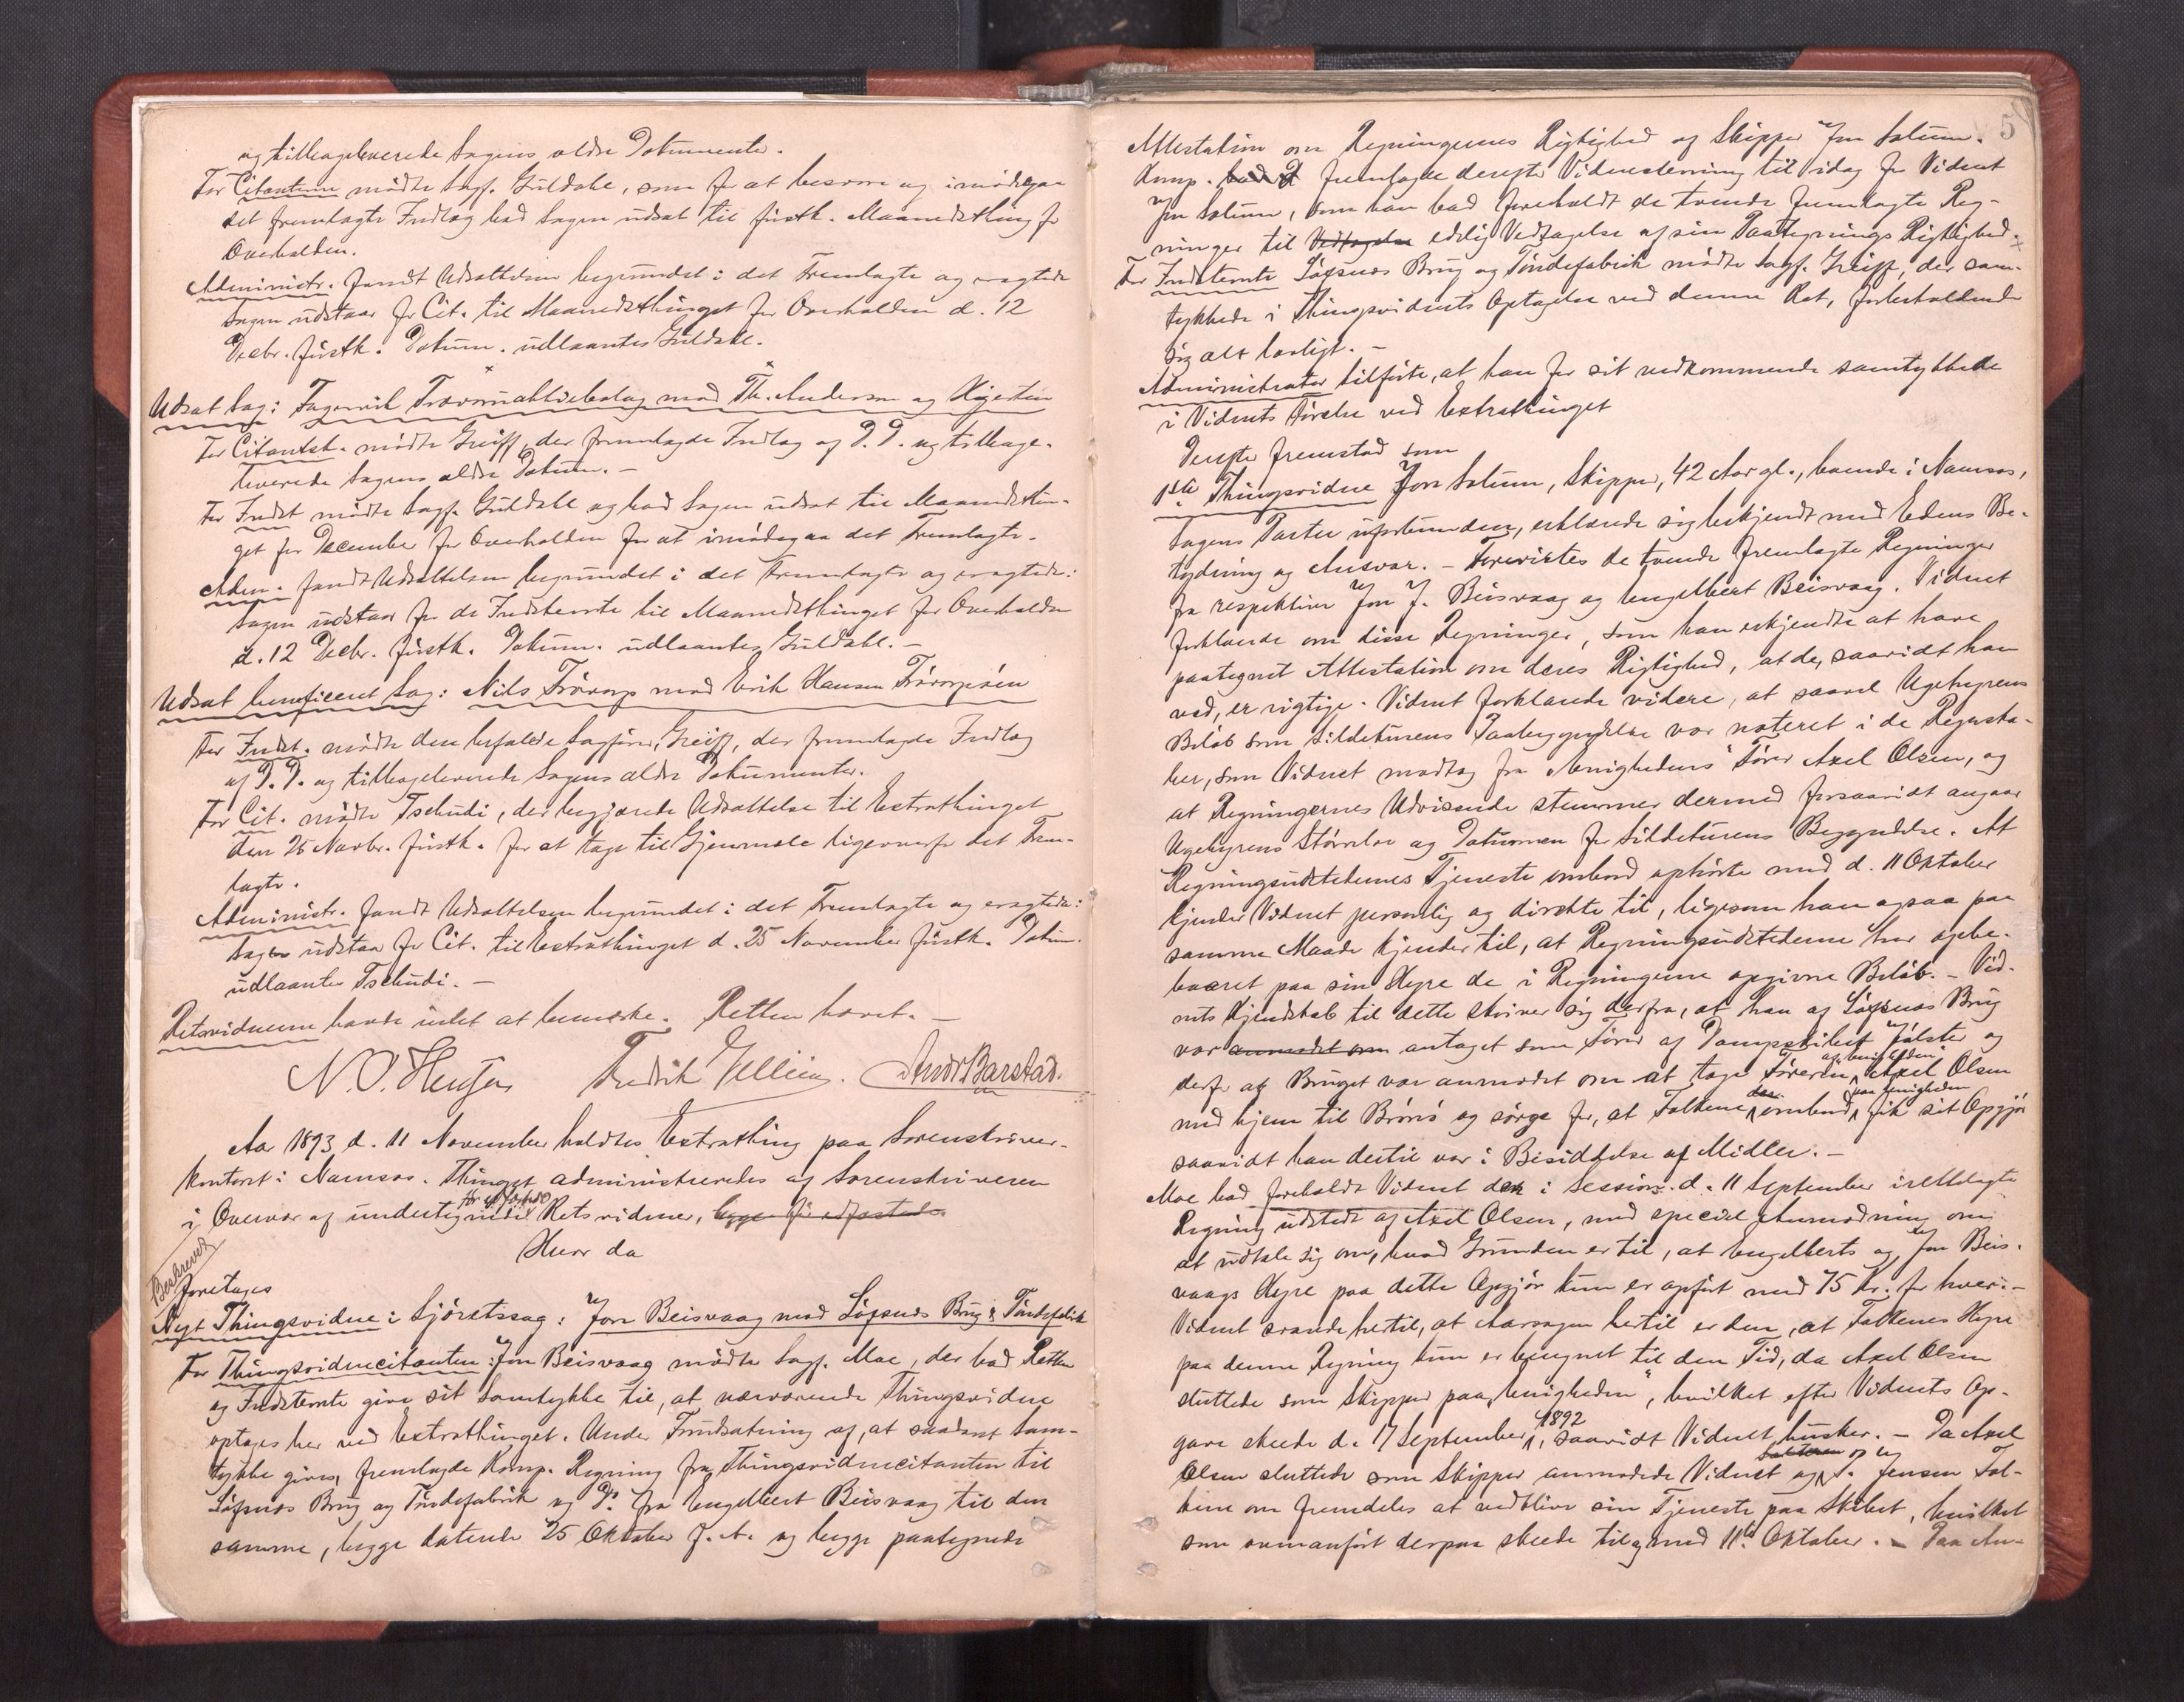 og tilbageleverede Sagens ældre Dokumenter.
For Citanterne mødte Sagf. Guldahl, som for at besvare og imødegaa
det fremlagte Indlæg bad Sagen udsat til førstk. Maanedsthing for
Overhalden.
Administr. fandt Udsættelsen begrundet i det Fremlagte og eragtede
Sagen udstaar for Cit. til Maanedsthinget for Overhalden d. 12
Decbr. førstk. Dokum. udlaantes Guldahl.
Udsat Sag: Fagervik Trævareaktiebolag mod Th. Anderson og Kjerstin
For Citantsk. mødte Greiff, der fremlagde Indlæg af D. D. og tilbage-
leverede Sagens ældre Dokum. —
For Indst mødte Sagf. Guldahl og bad Sagen udsat til Maanedsthin-
get for December for Overhalden for at imødegaa det Fremlagte.
Adm. fandt Udsættelsen begrundet i det Fremlagte og eragtede:
Sagen udstaar for de Indstevnte til Maanedsthinget for Overhalden
d. 12 Decbr. førstk. Dokum. udlaantes Guldahl. —
Udsat beneficeret Sag: Nils Frövorp mod Erik Hansen Frövorpöien
For Indst. mødte den befalede Sagfører, Greiff, der fremlagde Indlæg
af D. D. og tilbageleverede Sagens ældre Dokumenter.
For Cit. mødte Tschudi, der begjærede Udsættelse til Extrathinget
den 25 Novbr. førstk. for at tage til Gjenmæle ligeoverfor det Frem-
lagte.
Administr. fandt Udsættelsen begrundet i det Fremlagte og eragtede:
Sagen udstaar for Cit. til Extrathinget d. 25 November førstk. Dokum.
udlaantes Tschudi. —
Retsvidnerne havde intet at bemærke. Retten hævet. —
Fredrik Andr Barstad.
Aar 1893 d. 11 November holdtes Extrathing paa Sorenskriver-
kontoret i Namsos. Thinget administreredes af Sorenskriveren
i Overvær af undertegnede Retsvidner, begge før edfæstede.
Hvor da
Beskrevet
foretoges
Nyt Thingsvidne i Sjøretssag: Jon Beisvaag mod Löfsnæs Brug & Töndefabrik
For Thingsvidnecitanten Jon Beisvaag mødte Sagf. Moe, der bad Retten
og Indstevnte give sit Samtykke til, at nærværende Thingsvidne
optages her ved Extrathinget. Under Forudsætning af, at saadant Sam-
tykke gives, fremlagde Komp. Regning fra Thingsvidnecitanten til
Löfsnæs Brug og Töndefabrik og Do. fra Engelbert Beisvaag til den
samme, begge daterede 25 Oktober f. A. og begge paategnede
5
Attestation om Regningernes Rigtighed af Skipper Jon Solum.
Komp. bad D fremlagde derefter Vidnestevning til idag for Vidnet
Jon Solum, som han bad foreholdt de tvende fremlagte Reg-
ninger til Vedtagelse edelig Vedtagelse af sin Paategnings Rigtighed.
For Indstevnte Löfsnæs Brug og Töndefabrik mødte Sagf. Greiff, der sam-
tykkede i Thingsvidnets Optagelse ved denne Ret, forbeholdende
sig alt lovligt. —
Administrator tilførte, at han for sit vedkommende samtykkede
i Vidnets Førelse ved Extrathinget
Derefter fremstod som
1ste Thingsvidne Jon Solum, Skipper, 42 Aar gl., boende i Namsos,
Sagens Parter uforbunden, erklærede sig bekjendt med Edens Be-
tydning og Ansvar. — Forevistes de tvende fremlagte Regninger
fra respektive Jon J. Beisvaag og Engelbert Beisvaag. Vidnet
forklarede om disse Regninger, som han erkjendte at have
paategnet Attestation om deres Rigtighed, at de, saavidt han
ved, er rigtige. Vidnet forklarede videre, at saavel Ugehyrens
Beløb som Sildeturens Paabegyndelse var noteret i de Regnska-
ber, som Vidnet modtog fra „Enighedens“ Fører Axel Olsen, og
at Regningernes Udvisende stemmer dermed forsaavidt angaar
Ugehyrens Størrelse og Datumen for Sildeturens Begyndelse. At
Regningsudstedernes Tjeneste ombord ophørte med d. 11 Oktober
kjender Vidnet personlig og direkte til, ligesom han ogsaa paa
samme Maade kjender til, at Regningsudstederne har oppe-
baaret paa sin Hyre de i Regningerne opgivne Beløb. — Vid-
nets Kjendskab til dette skriver sig derfra, at han af Löfsnæs Brug
var anmodet om antaget som Fører af Dampskibet „Jölster“ og
derfor af Bruget var anmodet om at tage Føreren af „Enigheden“ Axel Olsen
med hjem til Brönö og sørge for, at Folkene ombord paa Enigheden fik sit Opgjør
saavidt han dertil var i Besiddelse af Midler. —
Moe bad foreholdt Vidnet den i Session d. 11 September irettelagte
Regning udstedt af Axel Olsen, med speciel Anmodning om
at udtale sig om, hvad Grunden er til, at Engelberts og Jon Beis-
vaags Hyre paa dette Opgjør kun er opført med 75 Kr. for hver. —
Vidnet svarede hertil, at Aarsagen hertil er den, at Folkenes Hyre
paa denne Regning kun er beregnet til den Tid, da Axel Olsen
sluttede som Skipper paa „Enigheden“, hvilket efter Vidnets Op-
gave skeede d. 17 September 1892, saavidt Vidnet husker. — Da Axel
Olsen sluttede som Skipper anmodede Vidnet og Jensen Fol-
kene om fremdeles at vedblive sin Tjeneste paa Skibet, hvilket
som ovenanført derpaa skeede til og med 11te Oktober. — Paa An-